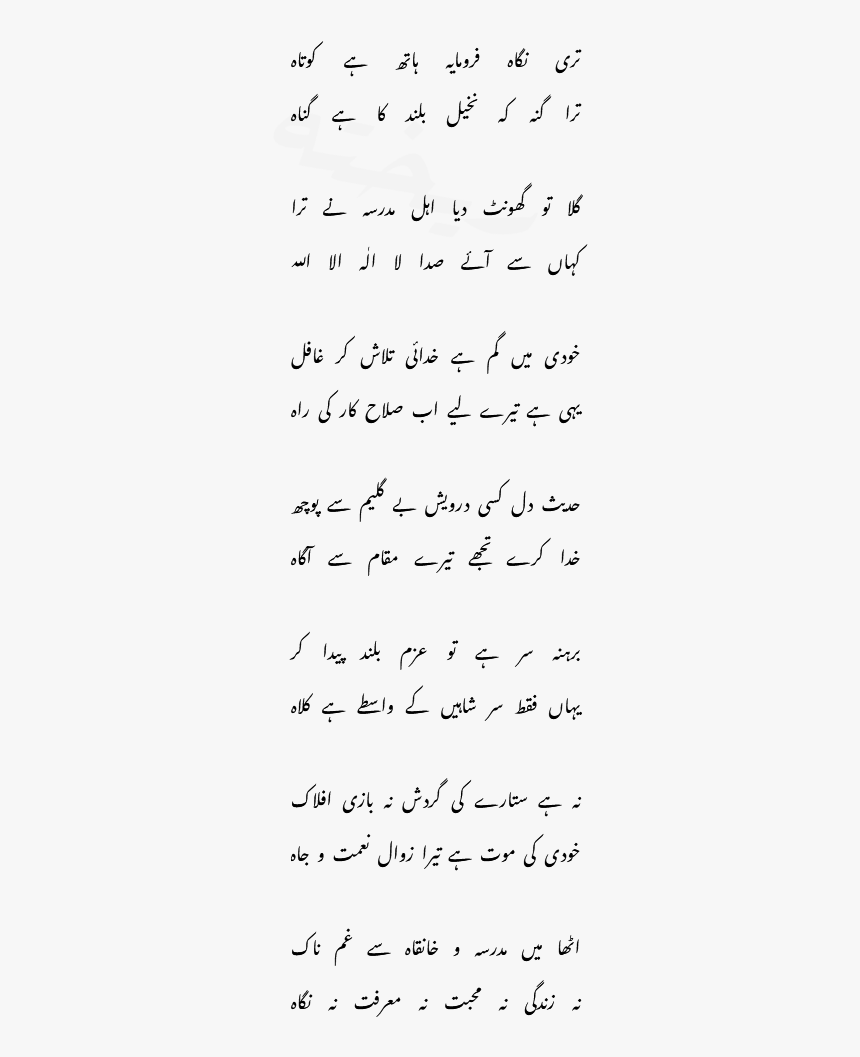 تری نگاہ فرومایہ ہاتھ ہے کوتاہ
ترا گنہ کہ نخیل بلند کا ہے گناہ
گلا تو گھونٹ دیا اہل مدرسہ نے ترا
کہاں سے آئے صدا لا الٰہ الا اللہ
خودی میں گم ہے خدائی تلاش کر غافل
یہی ہے تیرے لیے اب صلاح کار کی راہ
حدیث دل کسی درویش بے گلیم سے پوچھ
خدا کرے تجھے تیرے مقام سے آگاہ
برہنہ سر ہے تو عزم بلند پیدا کر
یہاں فقط سر شاہیں کے واسطے ہے کلاہ
نہ ہے ستارے کی گردش نہ بازی افلاک
خودی کی موت ہے تیرا زوال نعمت و جاہ
اٹھا میں مدرسہ و خانقاہ سے غم ناک
نہ زندگی نہ محبت نہ معرفت نہ نگاہ